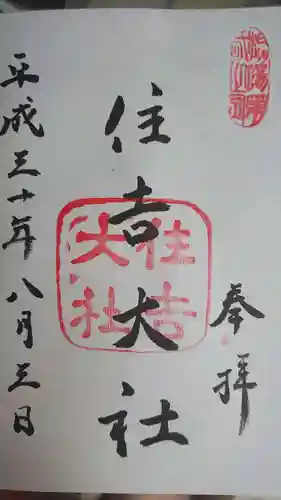 奉拝
住吉大社
住吉大社
平成三十年八月三日